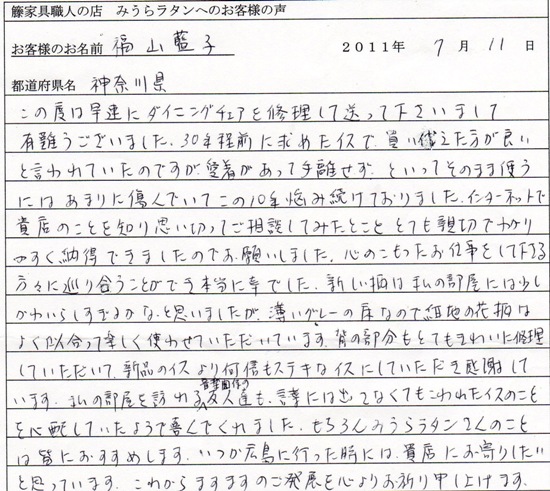 籐家具職人の店　みうらラタンへのお客様の声
お客様のお名前　福山藍子　2011年　7月　11日
都道府県名　神奈川県
この度は早速にダイニングチェアを修理して送って下さいまして
有難うございました。30年程前に求めたイスで、買い替えた方が良い
と言われていたのですが愛着があって手離せず、といってそのまま使う
にはあまりに傷んでいてこの10年悩み続けておりました。インターネットで
貴店のことを知り思い切ってご相談してみたとこと とても親切でわかり
やすく納得できましたのでお願いしました。心のこもったお仕事をして下さる
方々に巡り合うことができ本当に幸でした。新しい柄は私の部屋には少し
かわいらしすぎるかなと思いましたが、薄いグレーの床なので紺地の花柄は
よく似合って楽しく使わせていただいています。背の部分もとてもきれいに修理
していただいて、新品のイスより何倍もステキなイスにしていただき感謝して
います。私の部屋を訪れる音楽関係の友人達も、言葉には出さなくてもこわれたイスのこと
を心配していたようで喜んでくれました。もちろんみうらラタンさんのこと
は皆におすすめします。いつか広島に行った時には、貴店にお寄りしたい
と思っています。これからますますのご発展を心よりお祈り申し上げます。